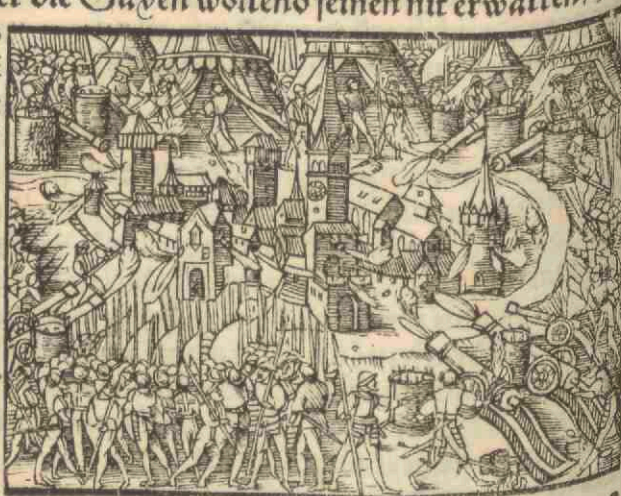 die Sayen wolltend seinen nit erwarten